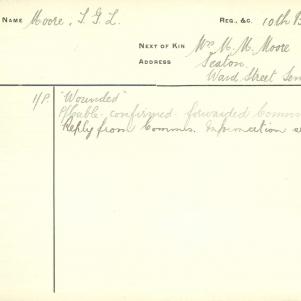 NAME Moore, S. G. L. REG., &C. 10th B
NEXT OF KIN Mrs M. M. Moore
ADDRESS Seaton
Ward Street
I/P. "Wounded"
P/Cable confirmed forwarded Comms
Reply from Comms. Information